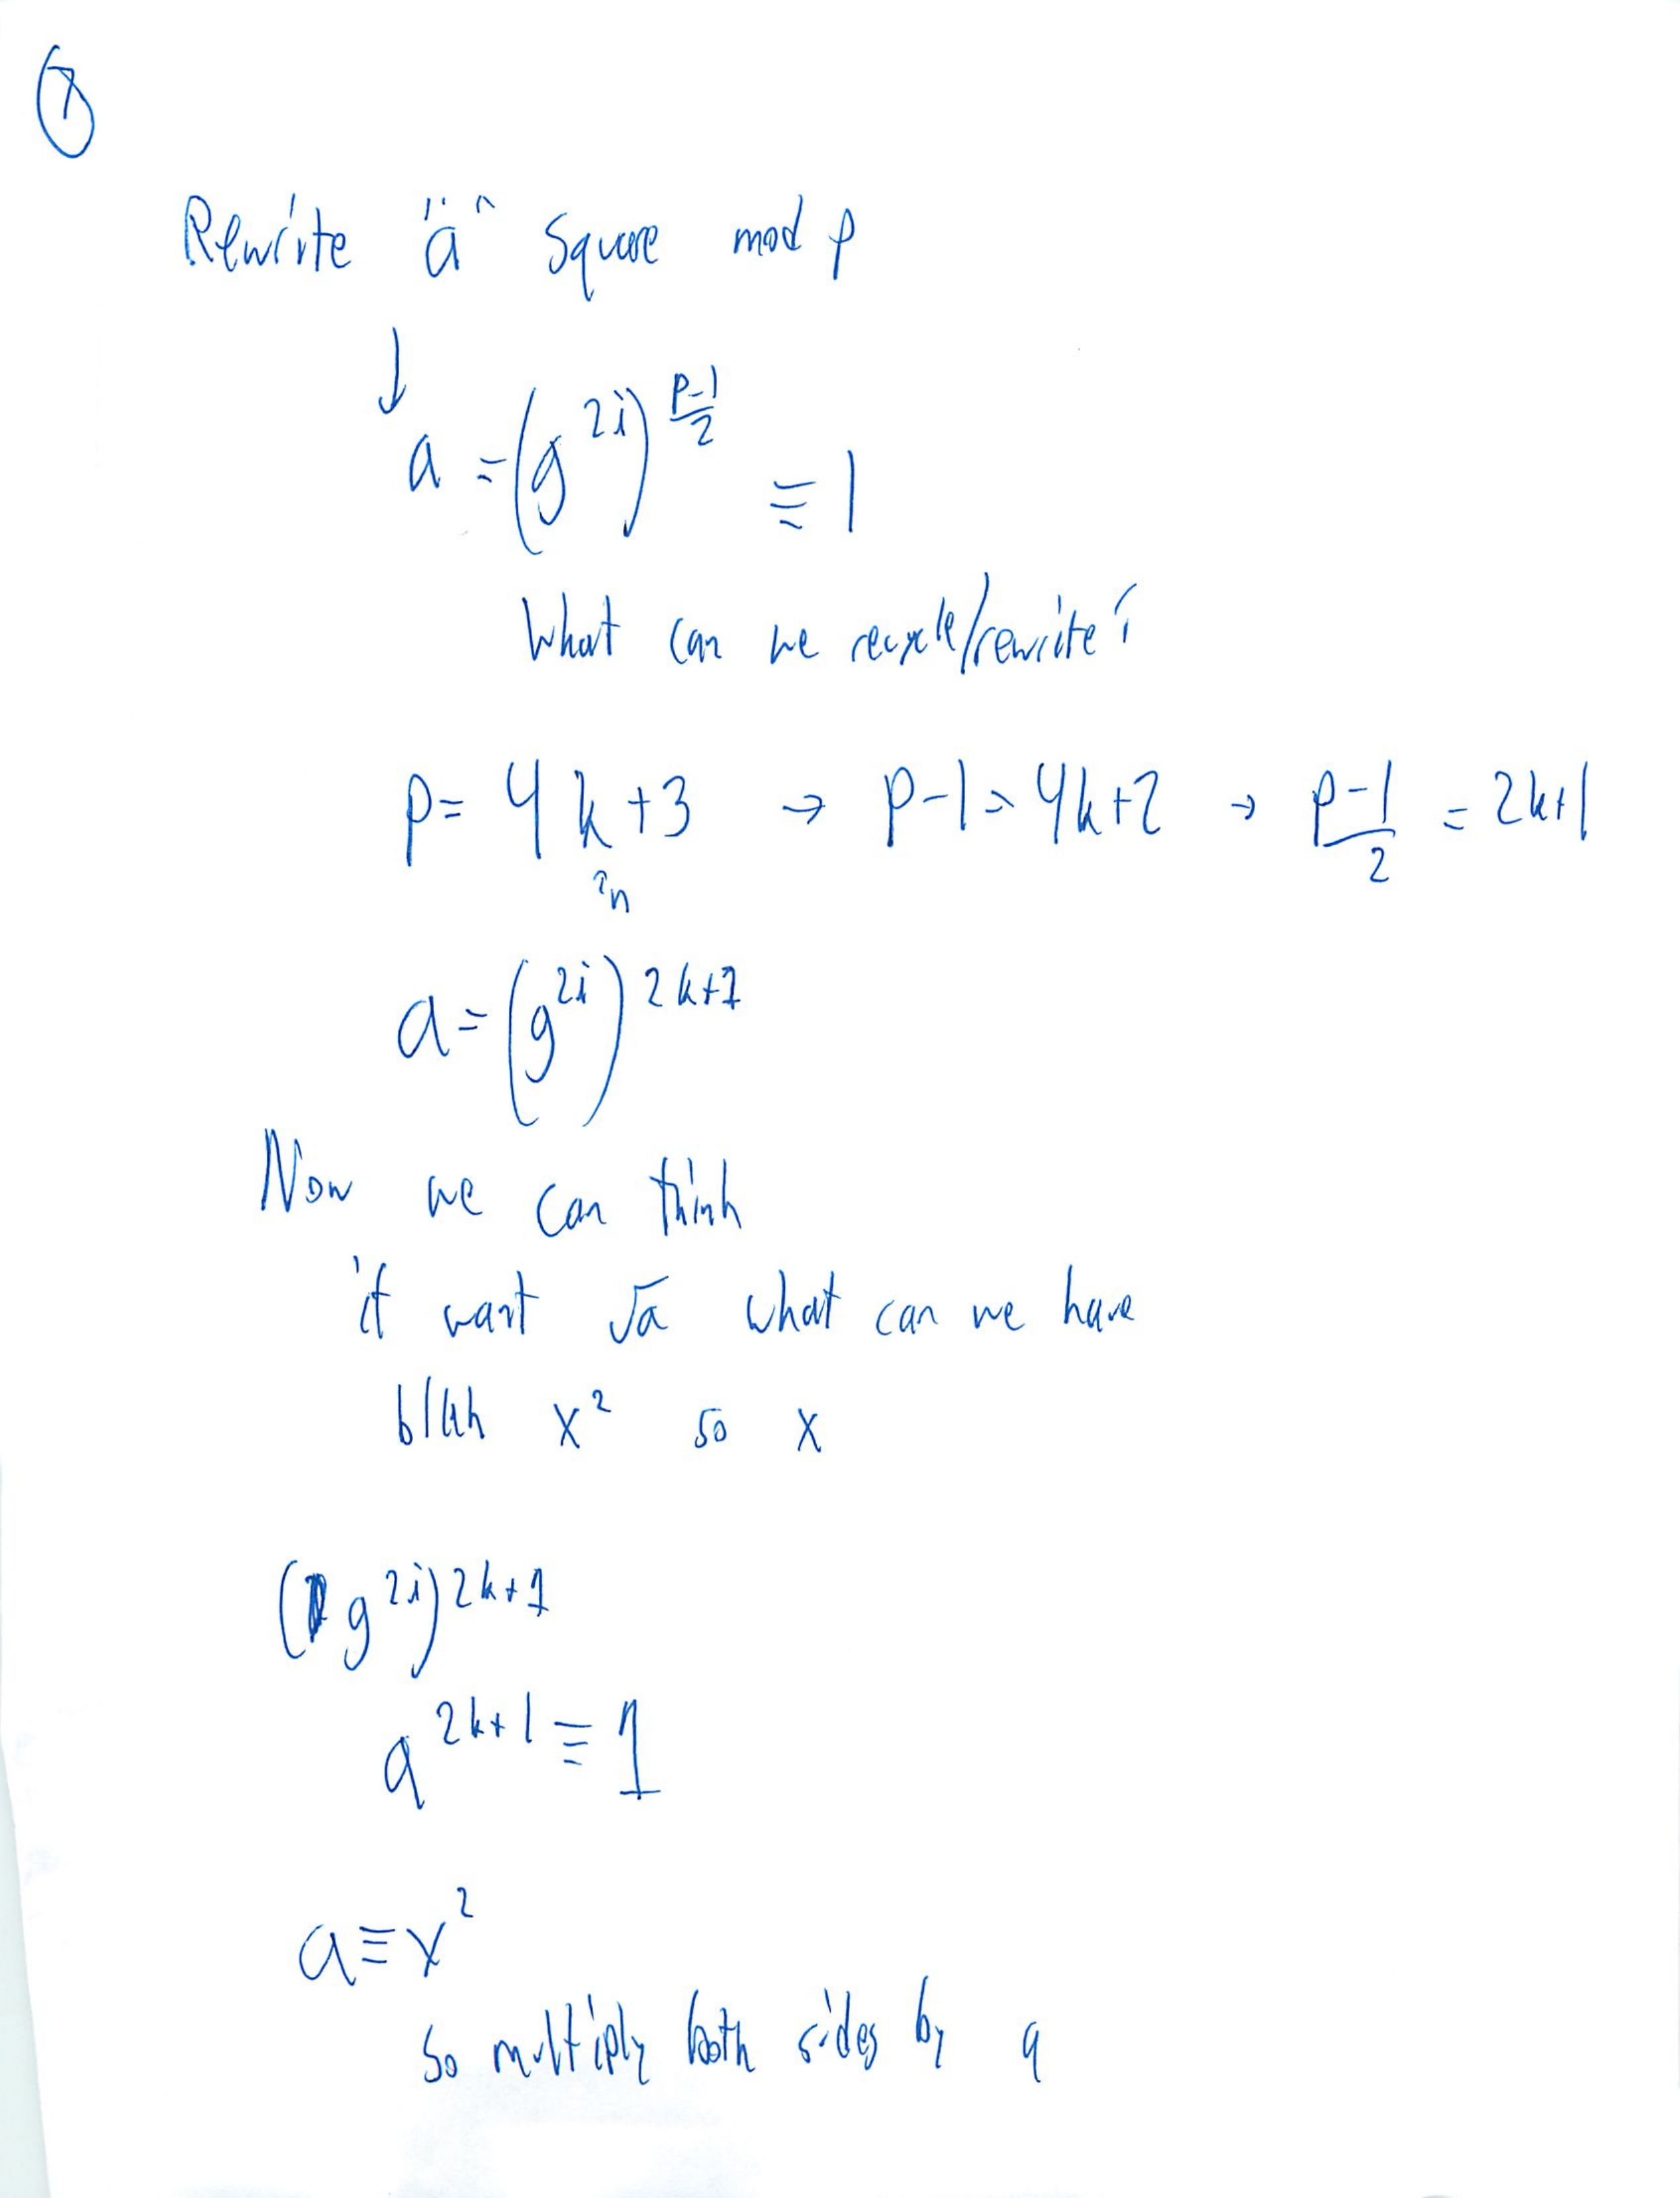 7
Rewrite "a" square mod p
↓
a = (g^{2i})^{\frac{p-1}{2}} ≡ 1
What can we recycle/rewrite?
p = 4k+3 → p-1 = 4k+2 → \frac{p-1}{2} = 2k+1
a = (g^{2i})^{2k+1}
Now we can think
if want √a what can we have
blah x² so x
(g^{2i})^{2k+1}
a^{2k+1} ≡ 1
a ≡ x²
So multiply both sides by a